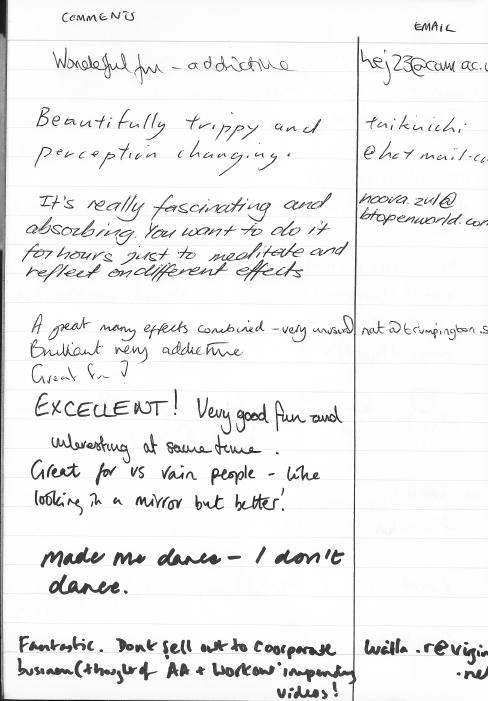 COMMENTS
EMAIL
Wonderful fun - addictive
hej23@cam.ac.u
Beautifully trippy and
taikuichi
perception changing.
@hotmail.co
It's really fascinating and
noova.zul@
absorbing. You want to do it
btopenworld.com
for hours just to meditate and
reflect on different effects
A great many effects combined - very unusual
nat@trumpington.s
Brilliant very addictive
Great fun!
EXCELLENT! Very good fun and
interesting at same time.
Great for us vain people - like
looking in a mirror but better!
Made me dance - I don't
dance.
Fantastic. Dont sell out to Coorporate
willa.r@virgin
business (thought of AA + Workout impending
.net
videos!